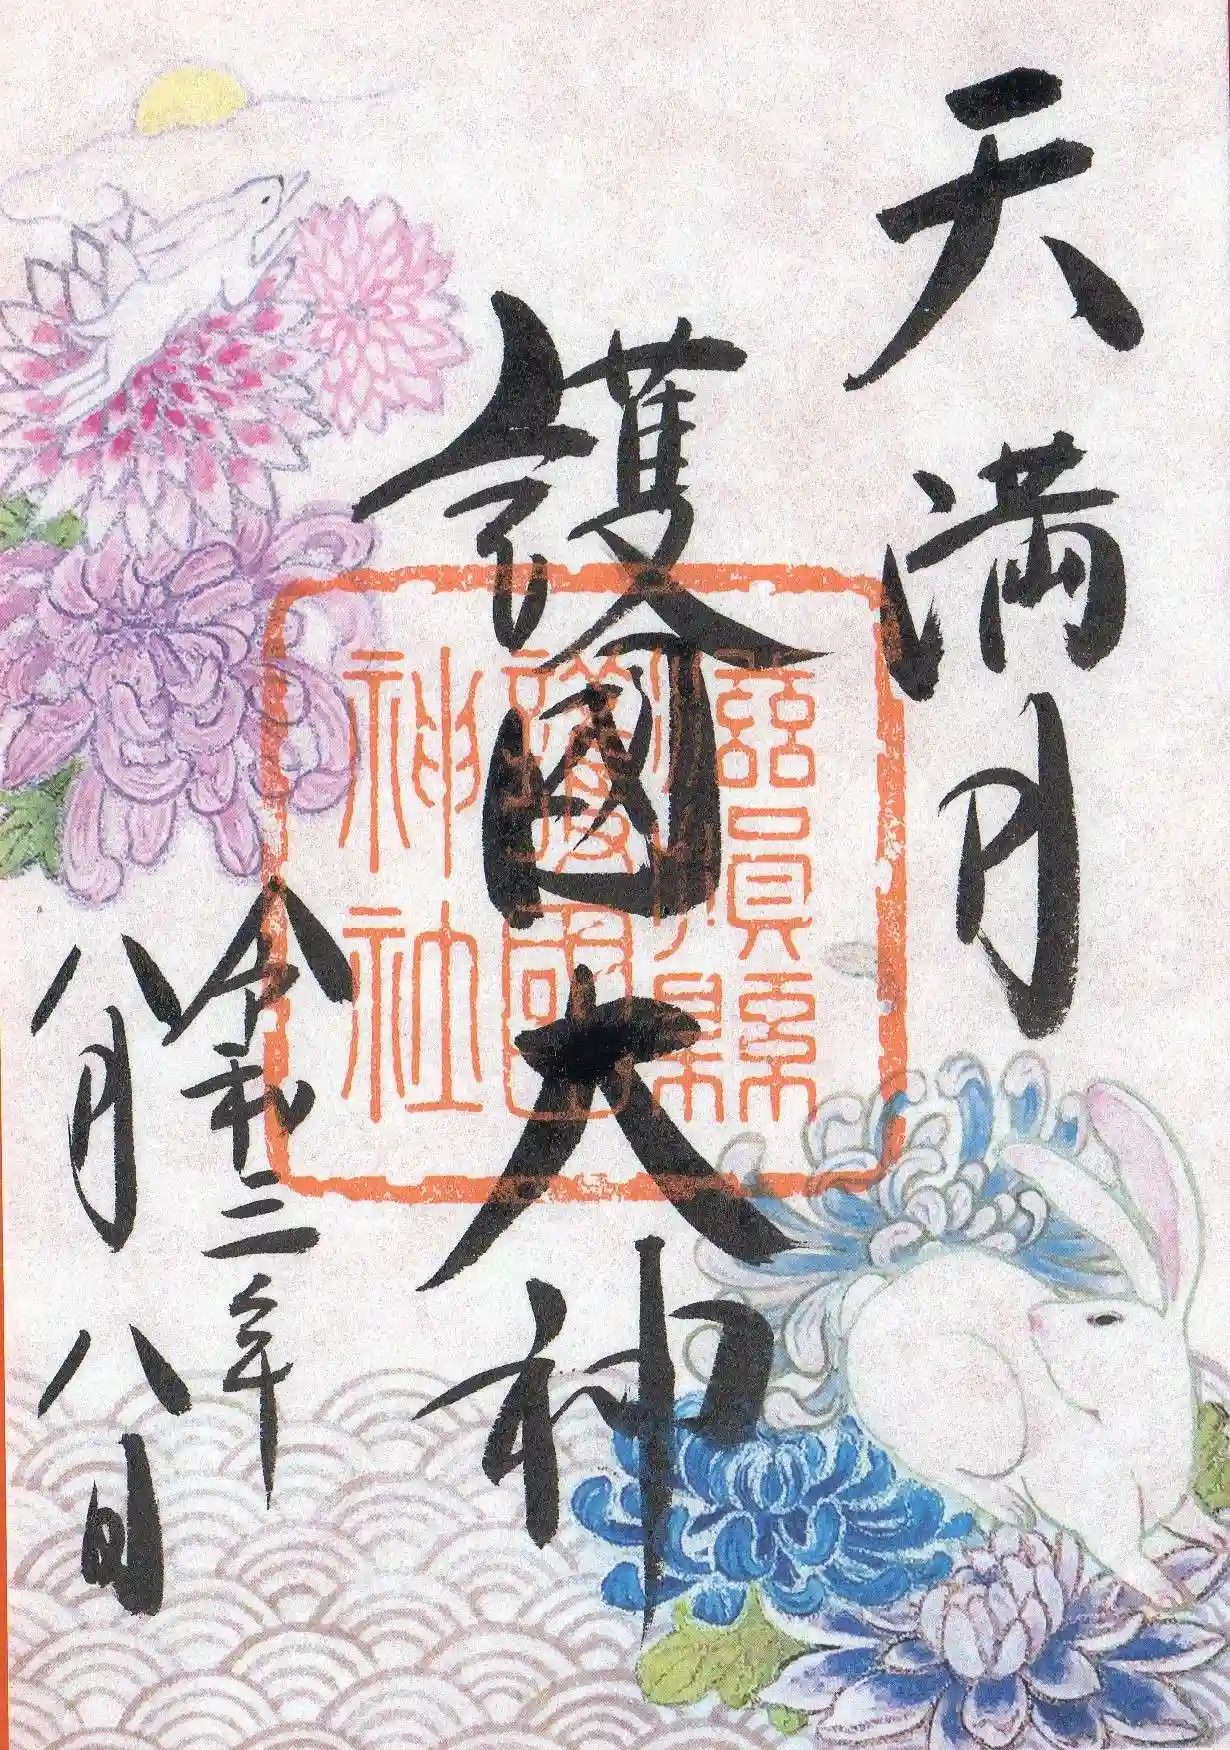 天満月
護國大神
滋賀縣
護國
神社
令和二年
八月八日